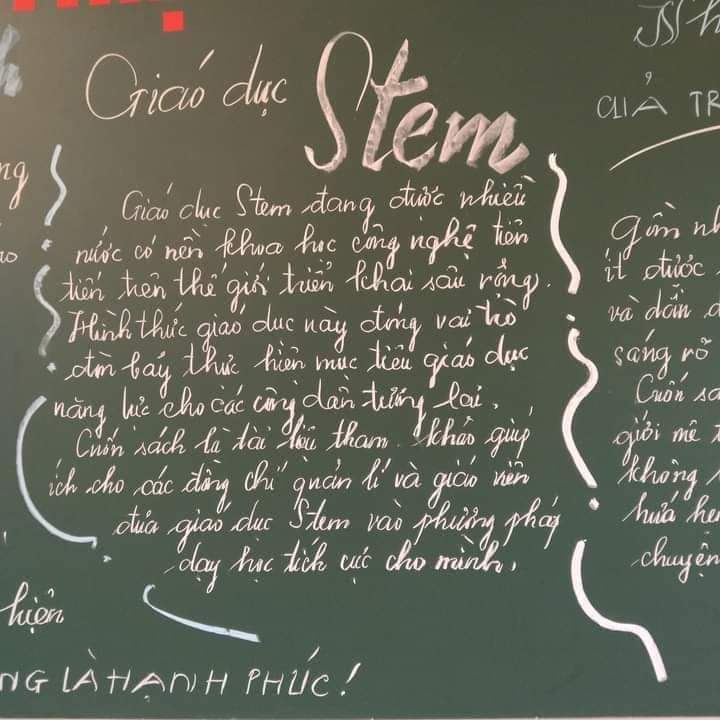 Giáo dục Stem
Giáo dục Stem đang được nhiều
nước có nền khoa học công nghệ tiên
tiến trên thế giới triển khai sâu rộng.
Hình thức giáo dục này đóng vai trò
đòn bẩy thực hiện mục tiêu giáo dục
năng lực cho các công dân tương lai.
Cuốn sách là tài liệu tham khảo giúp
ích cho các đồng chí quản lí và giáo viên
đưa giáo dục Stem vào phương pháp
dạy học tích cực cho mình.
hiện
NG LÀ HẠNH PHÚC!
CỦA TR
Gồm nh
ít được
và dẫn d
sáng rõ
Cuốn sá
giới mê t
không
hứa hẹ
chuyện